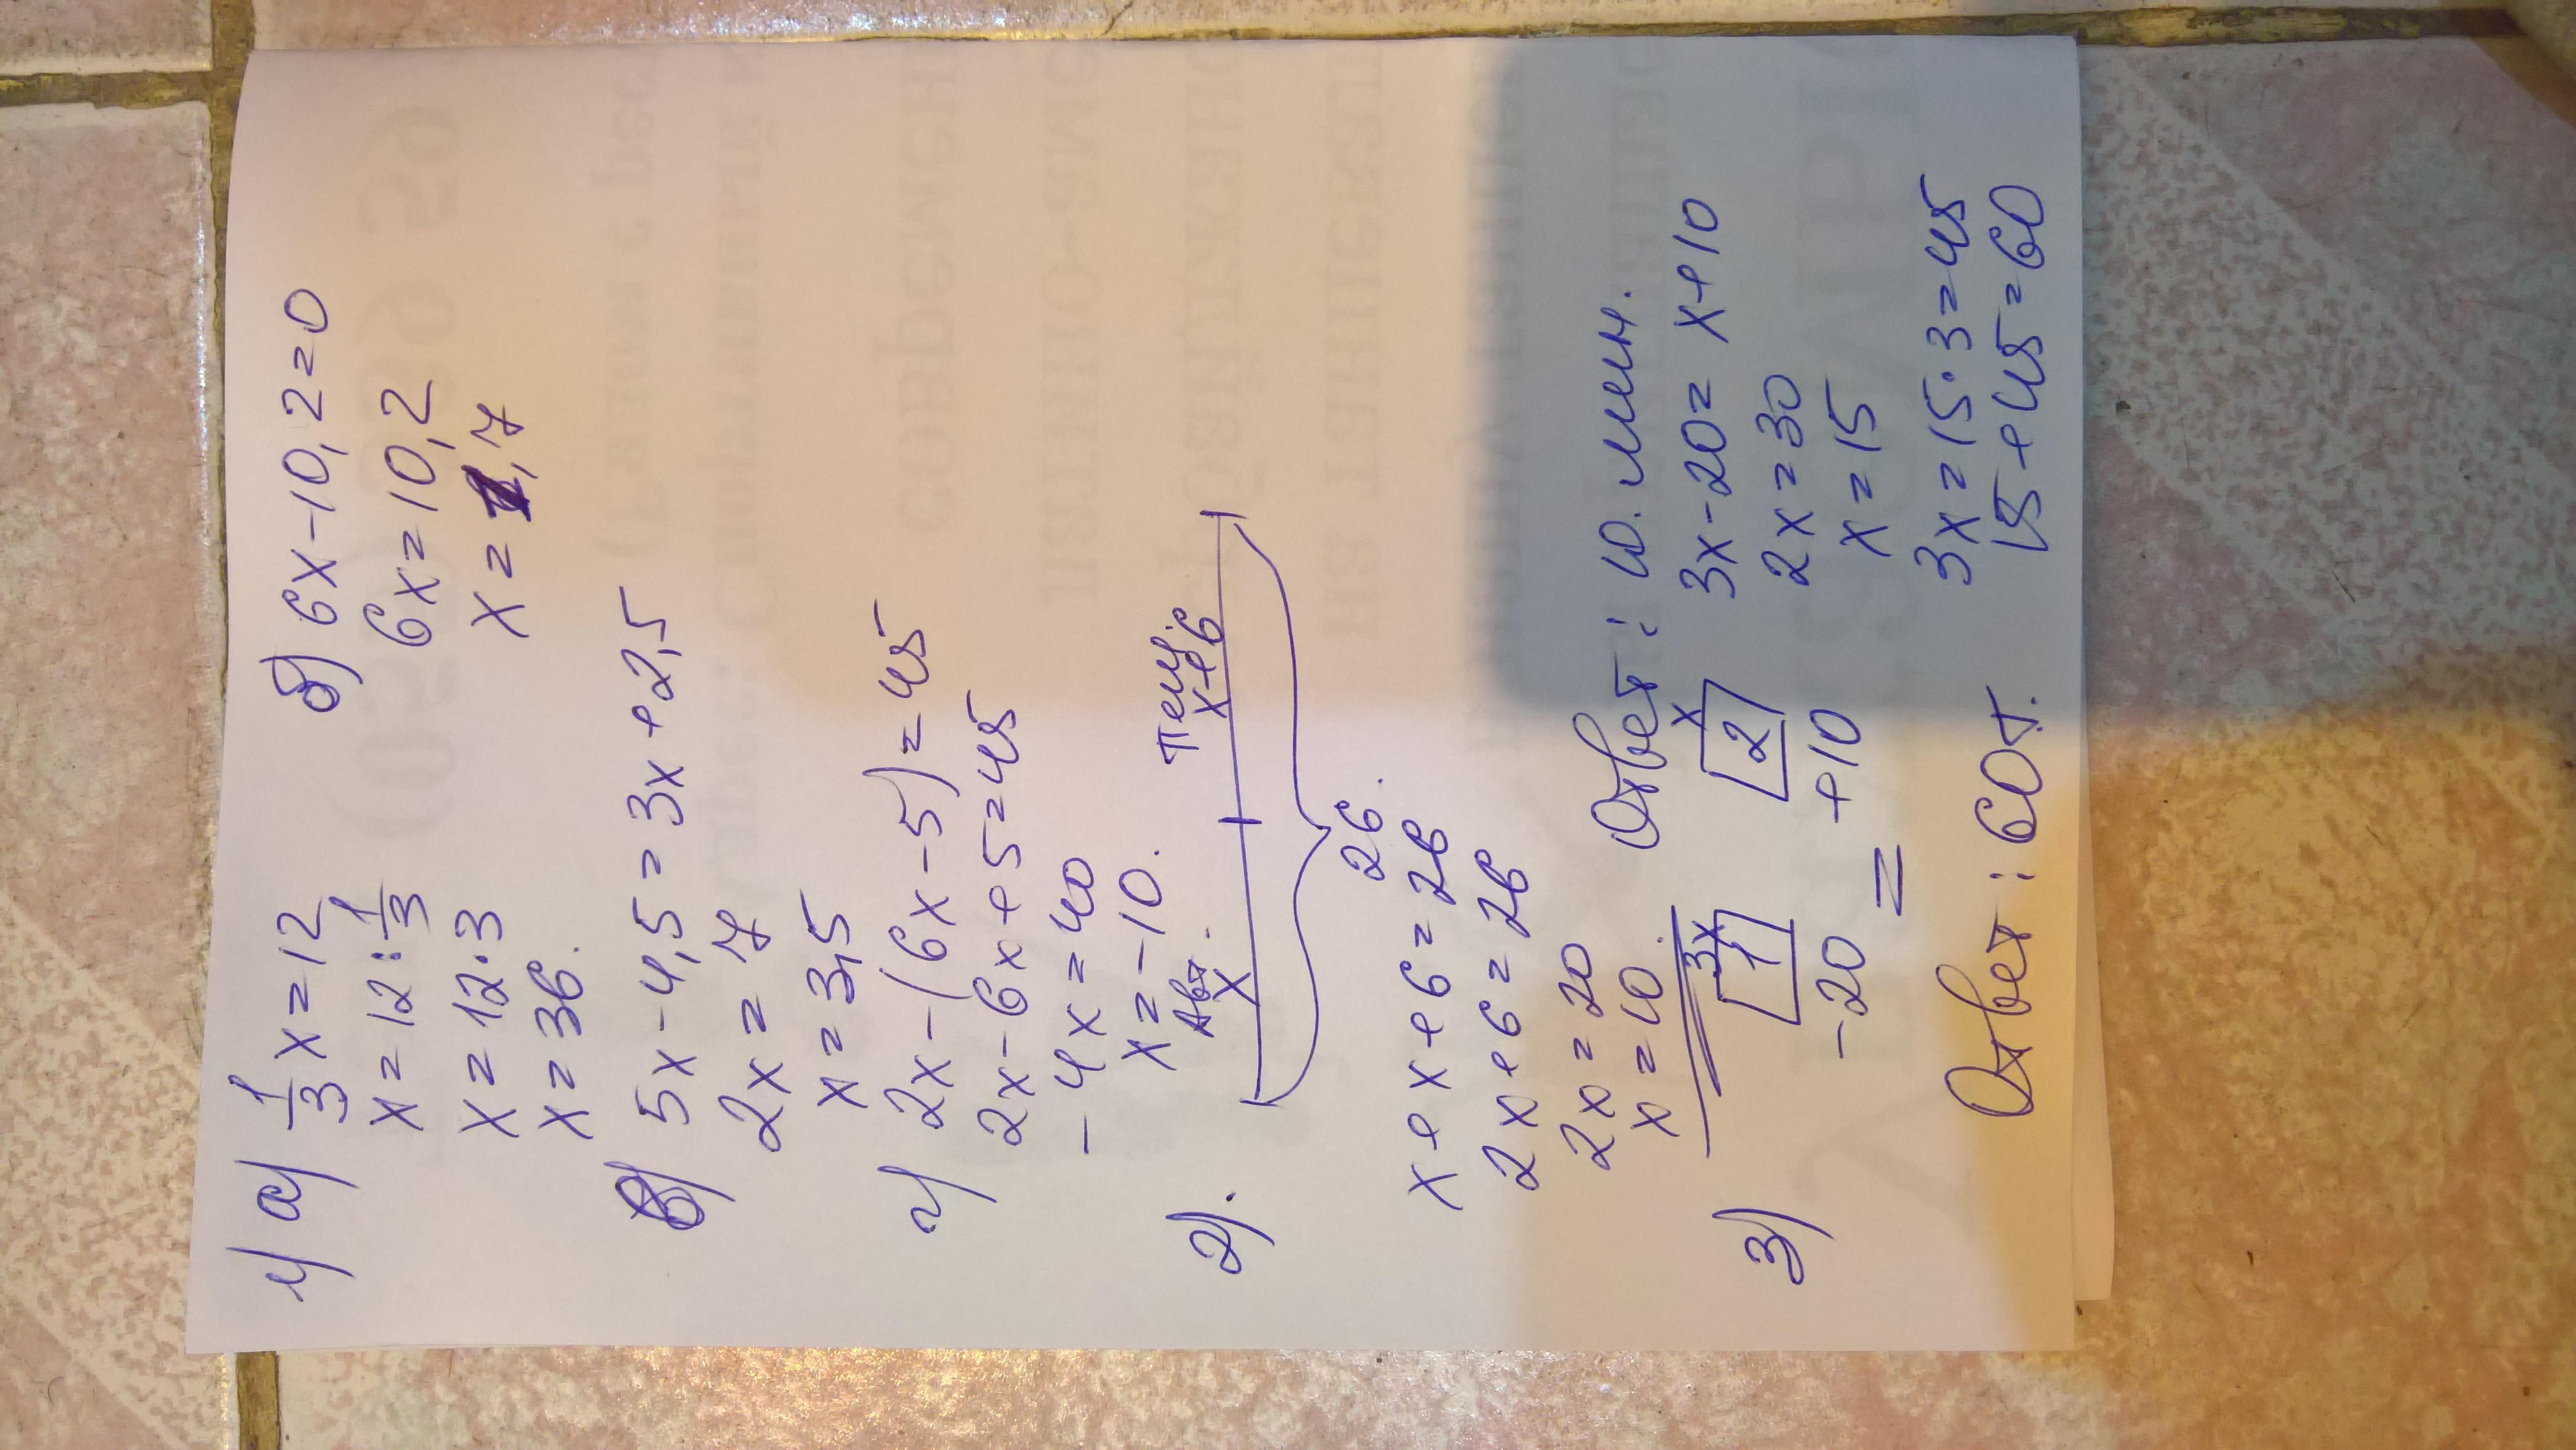 1) а) 1/3 x = 12
x = 12 : 1/3
x = 12 · 3
x = 36.
б) 6x - 10,2 = 0
6x = 10,2
x = 1,7
в) 5x - 4,5 = 3x + 2,5
2x = 7
x = 3,5
г) 2x - (6x - 5) = 45
2x - 6x + 5 = 45
- 4x = 40
x = -10.
2).
Авт. Пеш.
x x+6
26.
x + x + 6 = 26
2x + 6 = 26
2x = 20
x = 10.
Ответ: 10. мин.
3) 3x x
1 2
-20 +10
=
3x - 20 = x + 10
2x = 30
x = 15
3x = 15 · 3 = 45
15 + 45 = 60
Ответ: 60т.